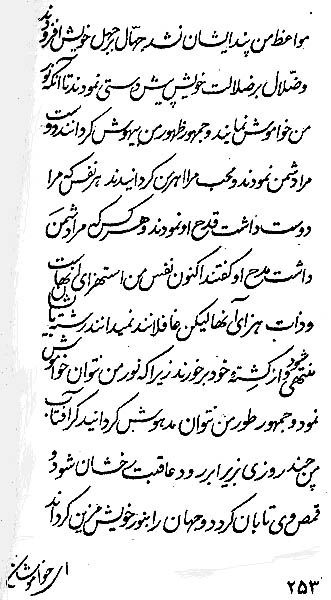 مواعظ من پند ایشان نشد جهال بر جهل خویش افزودند
و ضلال بر ضلالت خویش پیش دستی نمودند تا آنکه نور
من خاموش نمایند و جمهور ظهور من بیهوش کردانند دوست
مرا دشمن نمودند و محب مرا اهرمن کردانیدند هر نفس که مرا
دوست داشت قدح او نمودند و هر کس که مرا دشمن
داشت مدح او گفتند اکنون نفس من استهزای آنهاست
و ذات من هزای آنها لیکن غافلانند نمیدانند رشتیشان
منتهی شود و از کشتهٔ خود برخورند زیرا که نور من نتوان خواموش
نمود و جمهور طور من نتوان مدهوش کردانید کر آفتاب
من چند روزی زیر ابر رود عاقبت رخشان شود و
قمص وی تابان کردد و جهان را بنور خویش مزین کرداند
ای خواموشان
۲۵۳